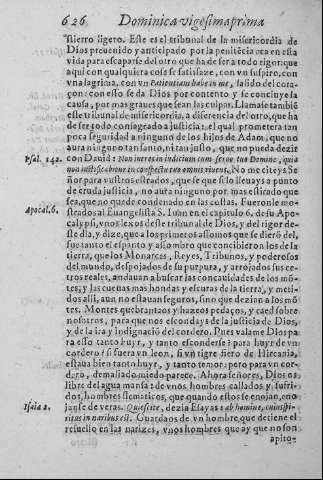 626 Dominica vigesimaprima
stierro ligero. Este es el tribunal de la misericordia de
Dios preuenido y anticipado por la penitẽcia en esta
vida para escaparse del otro que ha de ser a todo rigor: que
aqui con qualquiera cosa se satisfaze, con vn suspiro, con
vna lagrima, con vn Patientiam habe in me, salido del cora-
çon: con esto se da Dios por contento y se concluye la
causa, por mas graues que sean las culpas. Llamase tambiẽ
este tribunal de misericordia, a diferencia del otro, que ha
de ser todo consagrado a justicia: el qual prometera tan
poca seguridad a ninguno de los hijos de Adam, que no
aura ninguno tan santo, ni tan justo, que no pueda dezir
Psal. 142. con Dauid: Non intres in iudicium cum seruo tuo Domine, quia
non iustificabitur in conspectu tuo omnis viuens. No me citeys Se
ñor para vuestros estrados, que se que si lo lleuays a punto
de cruda justicia, no aura ninguno por mas estirado que
sea, que no quede condenado en las costas. Fueronle mo-
Apocal. 6. strados al Euangelista S. Iuan en el capitulo 6. de su Apo-
calypsi, vnos lexos deste tribunal de Dios, y del rigor de-
ste dia, y dize, que a los primeros assomos que se dierõ del,
fue tanto el espanto y assombro que concibieron los de la
tierra, que los Monarcas, Reyes, Tribunos, y poderosos
del mundo, despojados de su purpura, y arrojados sus ce-
tros reales, andauan a buscar las concauidades de los mõ-
tes, y las cueuas mas hondas y escuras de la tierra, y meti-
dos alli, aun no estauan seguros, sino que dezian a los mõ
tes. Montes quebrantaos y hazeos pedaços, y caed sobre
nosotros, para que nos escondays de la justicia de Dios,
y de la ira y indignaciõ del cordero. Pues valame Dios pa-
ra esso tanto huyr, y tanto esconderse? para huyr de vn
cordero? si fuera vn leon, si vn tigre fiero de Hircania,
estaua bien tanto huyr, y tanto temor: pero para vn cor-
dero, demasiado miedo parece. Ahora señores, Dios os
libre del agua mansa: de vnos hombres callados y sufri-
dos, hombres flematicos, que quando estos se enojan, eno
Isaiæ 2. janse de veras. Quiescite, dezia Esayas: ab homine, cuius spi-
ritus in naribus est. Guardaos de vn hombre que detiene el
resuello en las narizes, vnos hombres que ay que no son
apito-